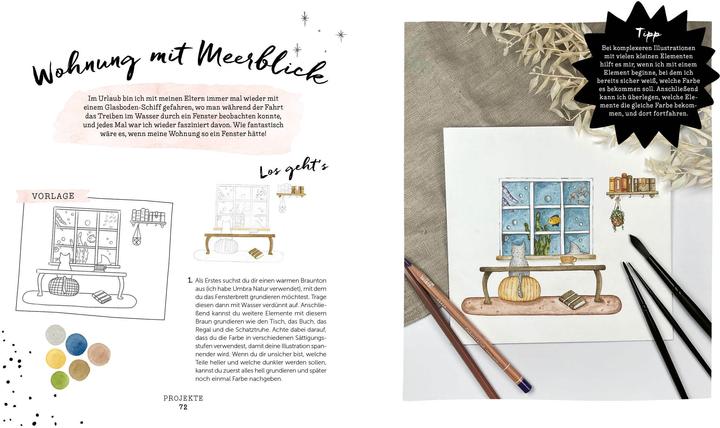 Wohnung mit Meerblick
Im Urlaub bin ich mit meinen Eltern immer mal wieder mit
einem Glasboden-Schiff gefahren, wo man während der Fahrt
das Treiben im Wasser durch ein Fenster beobachten konnte,
und jedes Mal war ich wieder fasziniert davon. Wie fantastisch
wäre es, wenn meine Wohnung so ein Fenster hätte!
Los geht's
VORLAGE
1. Als Erstes suchst du dir einen warmen Braunton
aus (ich habe Umbra Natur verwendet), mit dem
du das Fensterbrett grundieren möchtest. Trage
diesen dann mit Wasser verdünnt auf. Anschlie-
ßend kannst du weitere Elemente mit diesem
Braun grundieren wie den Tisch, das Buch, das
Regal und die Schatztruhe. Achte dabei darauf,
dass du die Farbe in verschiedenen Sättigungs-
stufen verwendest, damit deine Illustration span-
nender wird. Wenn du dir unsicher bist, welche
Teile heller und welche dunkler werden sollen,
kannst du zuerst alles hell grundieren und später
noch einmal Farbe nachgeben.
PROJEKTE
72
Tipp
Bei komplexeren Illustrationen
mit vielen kleinen Elementen
hilft es mir, wenn ich mit einem
Element beginne, bei dem ich
bereits sicher weiß, welche Farbe
es bekommen soll. Anschließend
kann ich überlegen, welche Ele-
mente die gleiche Farbe bekom-
men, und dort fortfahren.